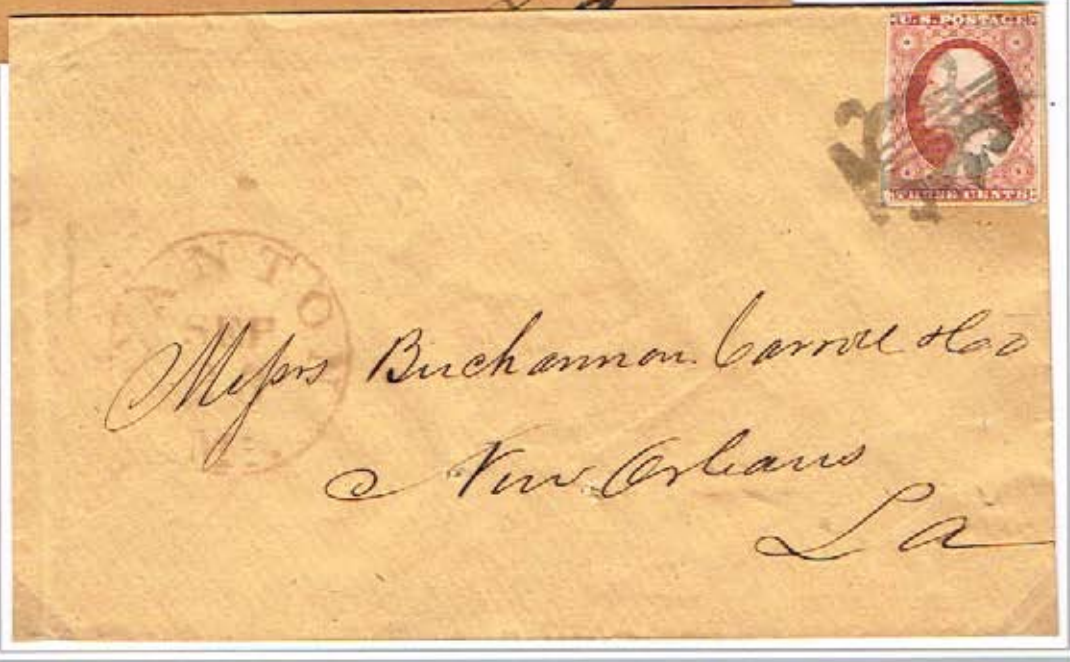 U.S. POSTAGE
THREE CENTS
CANTON
SEP
Messrs Buchannon Carroll & Co
New Orleans
La